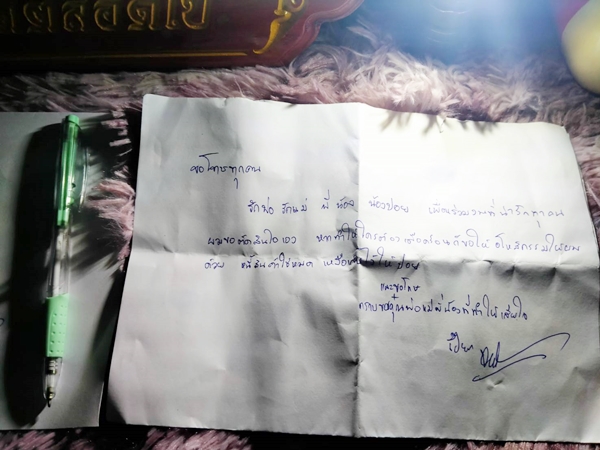 ขอโทษทุกคน
รักพ่อ รักแม่ พี่ น้อง น้องปอย เพื่อนร่วมงานที่น่ารักทุกคน
ผมขอตัดสินใจเอง หากทำให้ใครต้องเดือดร้อนก็ขอให้อโหสิกรรมให้ผม
ด้วย หนี้สินค่าใช้หมด เหลือ ให้ปอย
และขอโทษ
กราบขอคุณพ่อแม่พี่น้องที่ทำให้เสียใจ